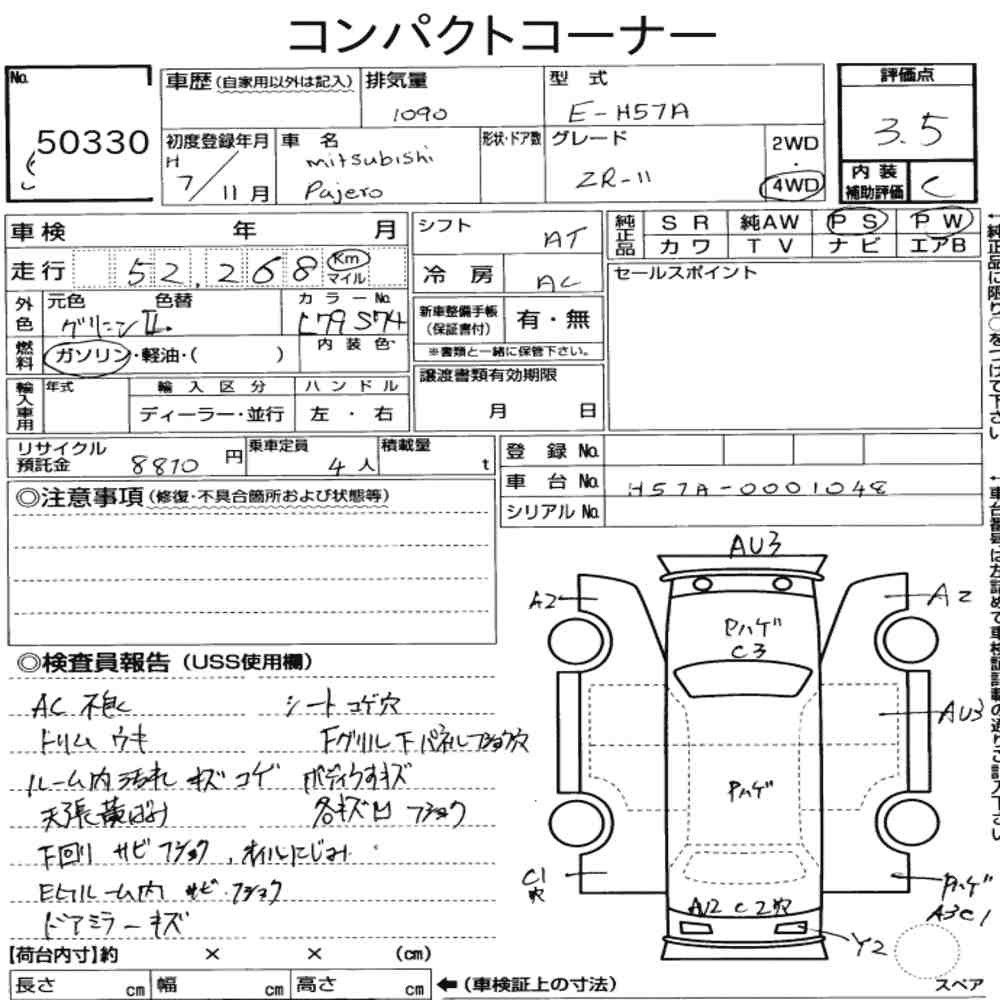 コンパクトコーナー
No. 50330
車歴 (自家用以外は記入)
排気量 1090
型式 E-H57A
評価点 3.5
初度登録年月 H 7/11月
車名 mitsubishi Pajero
形状・ドア数
グレード ZR-II
2WD・4WD
内装補助評価 C
車検 年 月
シフト AT
純正品 SR 純AW PS PW
カワ TV ナビ エアB
走行 52,268 Km マイル
冷房 AC
セールスポイント
外色 元色 色替 カラーNo.
グリーンII.
新車整備手帳(保証書付) 有・無
※書類と一緒に保管下さい。
燃料 ガソリン・軽油・( ) 内装色
譲渡書類有効期限
月 日
輸入車用 年式 輸入区分 ハンドル
ディーラー・並行 左・右
リサイクル預託金 8810円
乗車定員 4人
積載量 t
登録No.
車台No. H57A-0001048
シリアルNo.
◎注意事項(修復・不具合箇所および状態等)
◎検査員報告(USS使用欄)
AC 不良 シートコゲ穴
トリム ウキ 下グリル下パネルフショク穴
ルーム内汚れ キズ コゲ ボディウすキズ
天張黄ばみ 各キズ凹 フショク
下回り サビフショク,オイルにじみ
ルーム内 サビ・フショク
ドアミラーキズ
【荷台内寸】約 × × (cm)
長さ cm 幅 cm 高さ cm ←(車検証上の寸法)
AU3
A2
A2
Pハゲ
C3
AU3
Pハゲ
C1
穴
A12 C2穴
Pハゲ
A3C1
Y2
スペア
←純正品に限り○をつけて下さい
←車台番号は左詰めで車検証記載の通りご記入下さい